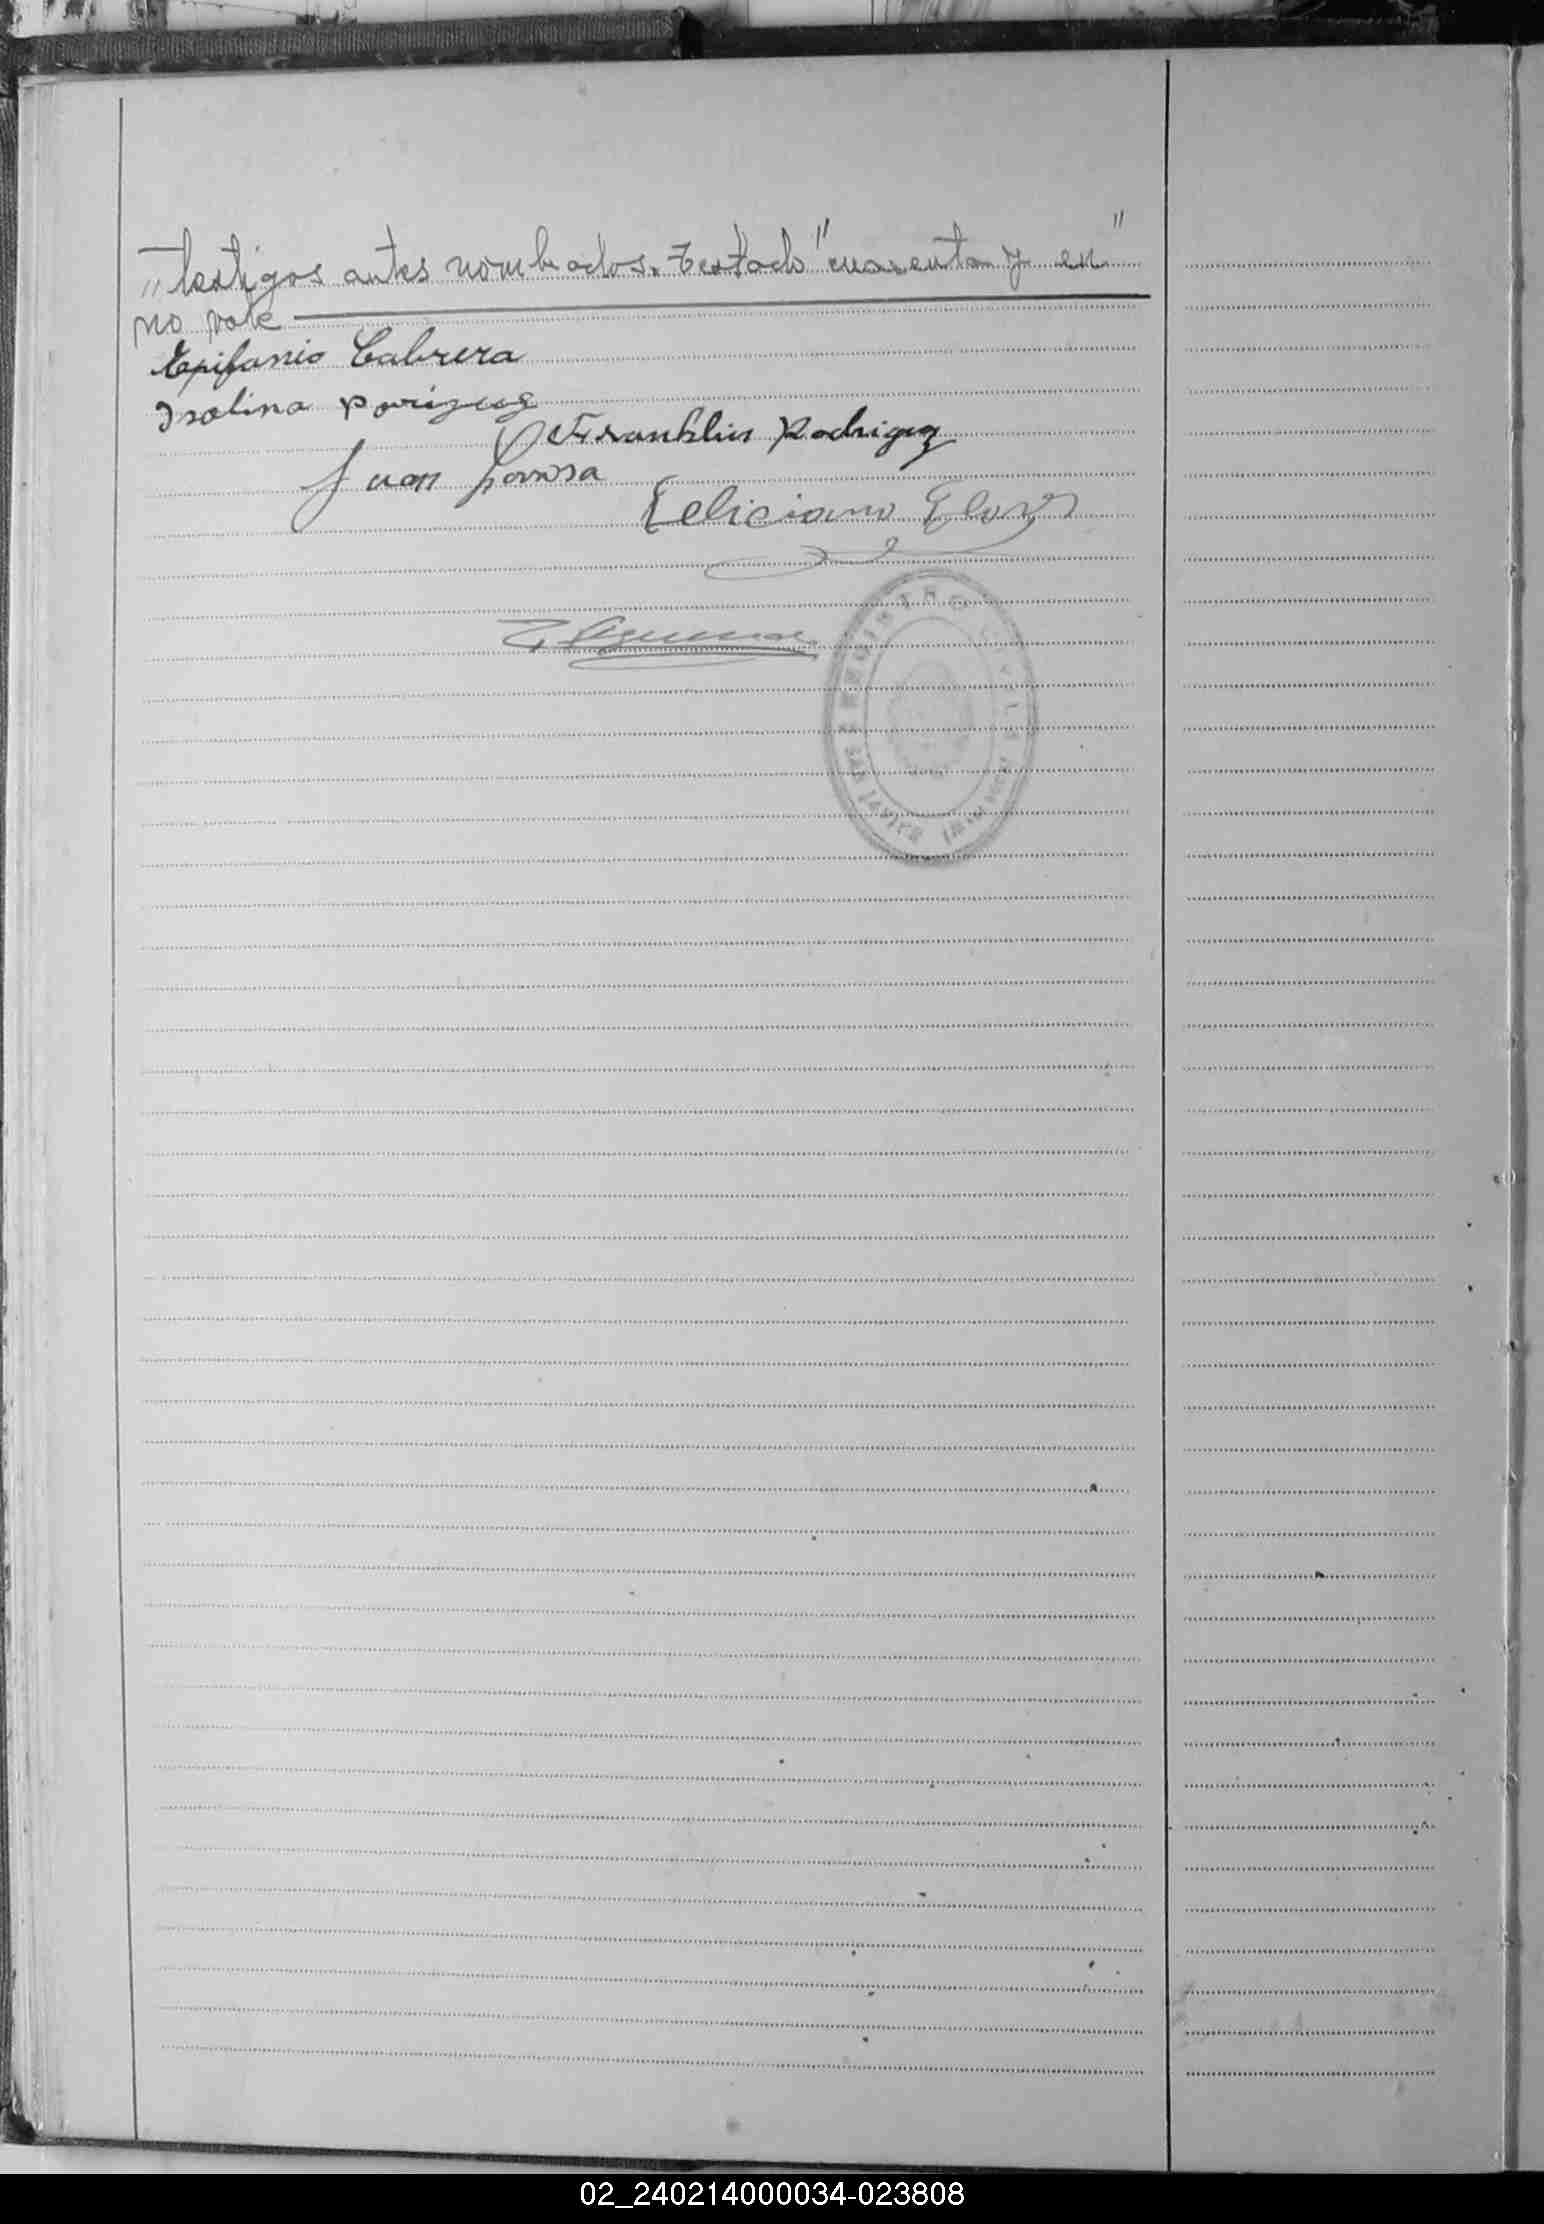 "testigos antes nombrados. Testado "cuarenta y en"
no vale
Epifanio Cabrera
Isolina
Franklin Rodriguez
Juan
Feliciano Eloy
REGISTRO CIVIL
SAN JAVIER
02_240214000034-023808